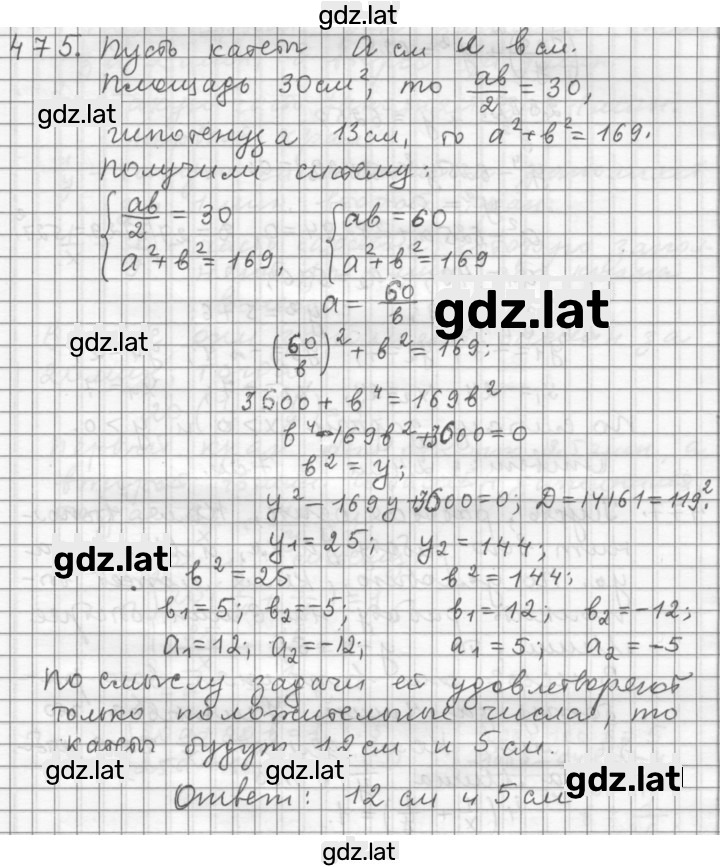 gdz.lat
475. Пусть катеты a см и в см.
Площадь 30 см², то ав/2 = 30,
gdz.lat
гипотенуза 13 см, то a² + в² = 169.
Получили систему:
{ ав/2 = 30 { ав = 60
a² + в² = 169, a² + в² = 169
a = 60/в gdz.lat
gdz.lat (60/в)² + в² = 169;
3600 + в⁴ = 169в²
в⁴ - 169в² + 3600 = 0
в² = y;
y² - 169y + 3600 = 0; D = 14161 = 119².
y₁ = 25; y₂ = 144;
gdz.lat
в² = 25 в² = 144;
в₁ = 5; в₂ = -5; в₁ = 12; в₂ = -12;
a₁ = 12; a₂ = -12; a₁ = 5; a₂ = -5
По смыслу задачи ей удовлетворяют
только положительные числа, то
катеты будут 12 см и 5 см.
gdz.lat gdz.lat
Ответ: 12 см и 5 см
gdz.lat